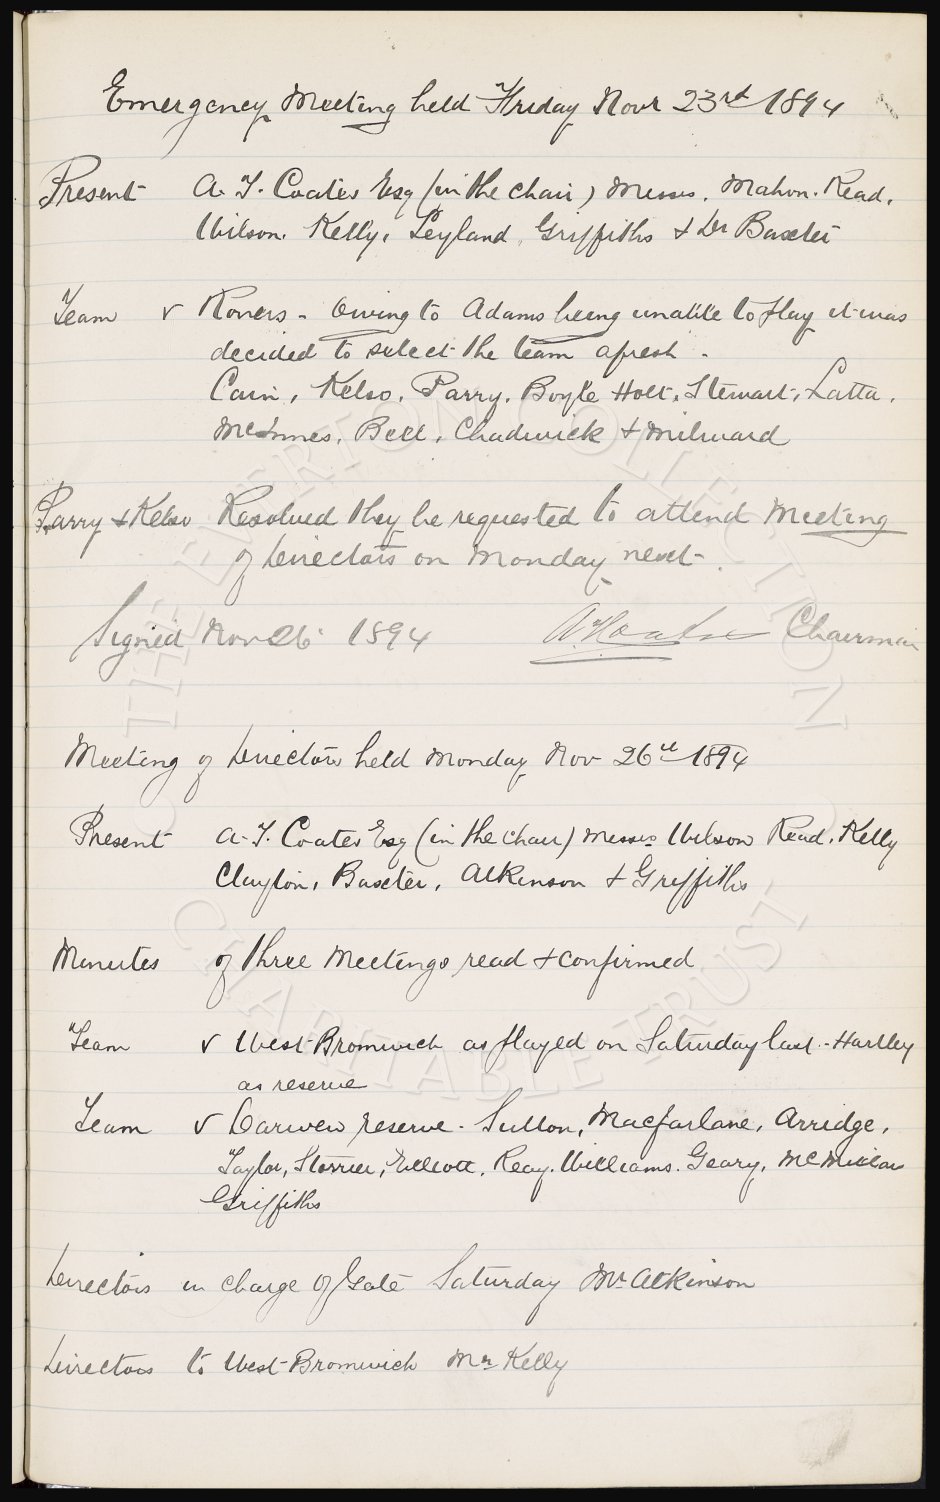 Emergency Meeting held Friday Novr 23rd 1894
Present A. T. Coates Esq (in the chair) Messrs. Mahon. Read.
Wilson. Kelly, Leyland, Griffiths & Dr Baxter
Team v Rovers - Owing to Adams being unable to play it was
decided to select the team afresh.
Cain, Kelso, Parry, Boyle Holt, Stewart, Latta,
McInnes, Bell, Chadwick & Milward
Parry & Kelso Resolved they be requested to attend Meeting
of Directors on Monday next.
Signed Nov 26 1894 A T Coates Chairman
Meeting of Directors held Monday Nov 26th 1894
Present A. T. Coates Esq (in the chair) Messrs Wilson Read, Kelly
Clayton, Baxter, Atkinson & Griffiths
Minutes of three Meetings read & confirmed
Team v West Bromwich as played on Saturday last - Hartley
as reserve
Team v Darwen reserve - Sutton, Macfarlane, Arridge,
Taylor, Storrier, Elliott, Reay. Williams. Geary, McMillan
Griffiths
Directors in charge of Gate Saturday Mr Atkinson
Directors to West Bromwich Mr Kelly
© THE EVERTON COLLECTION CHARITABLE TRUST